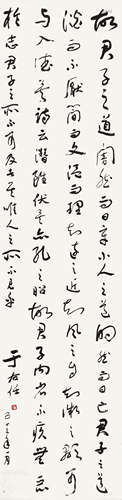 故君子之道闇然而日章小人之道的然而日亡君子之道
淡而不厭簡而文溫而理知遠之近知風之自知微之顯可
與入德矣詩云潛雖伏矣亦孔之昭故君子內省不疚無惡
於志君子之所不可及者其唯人之所不見乎
于右任